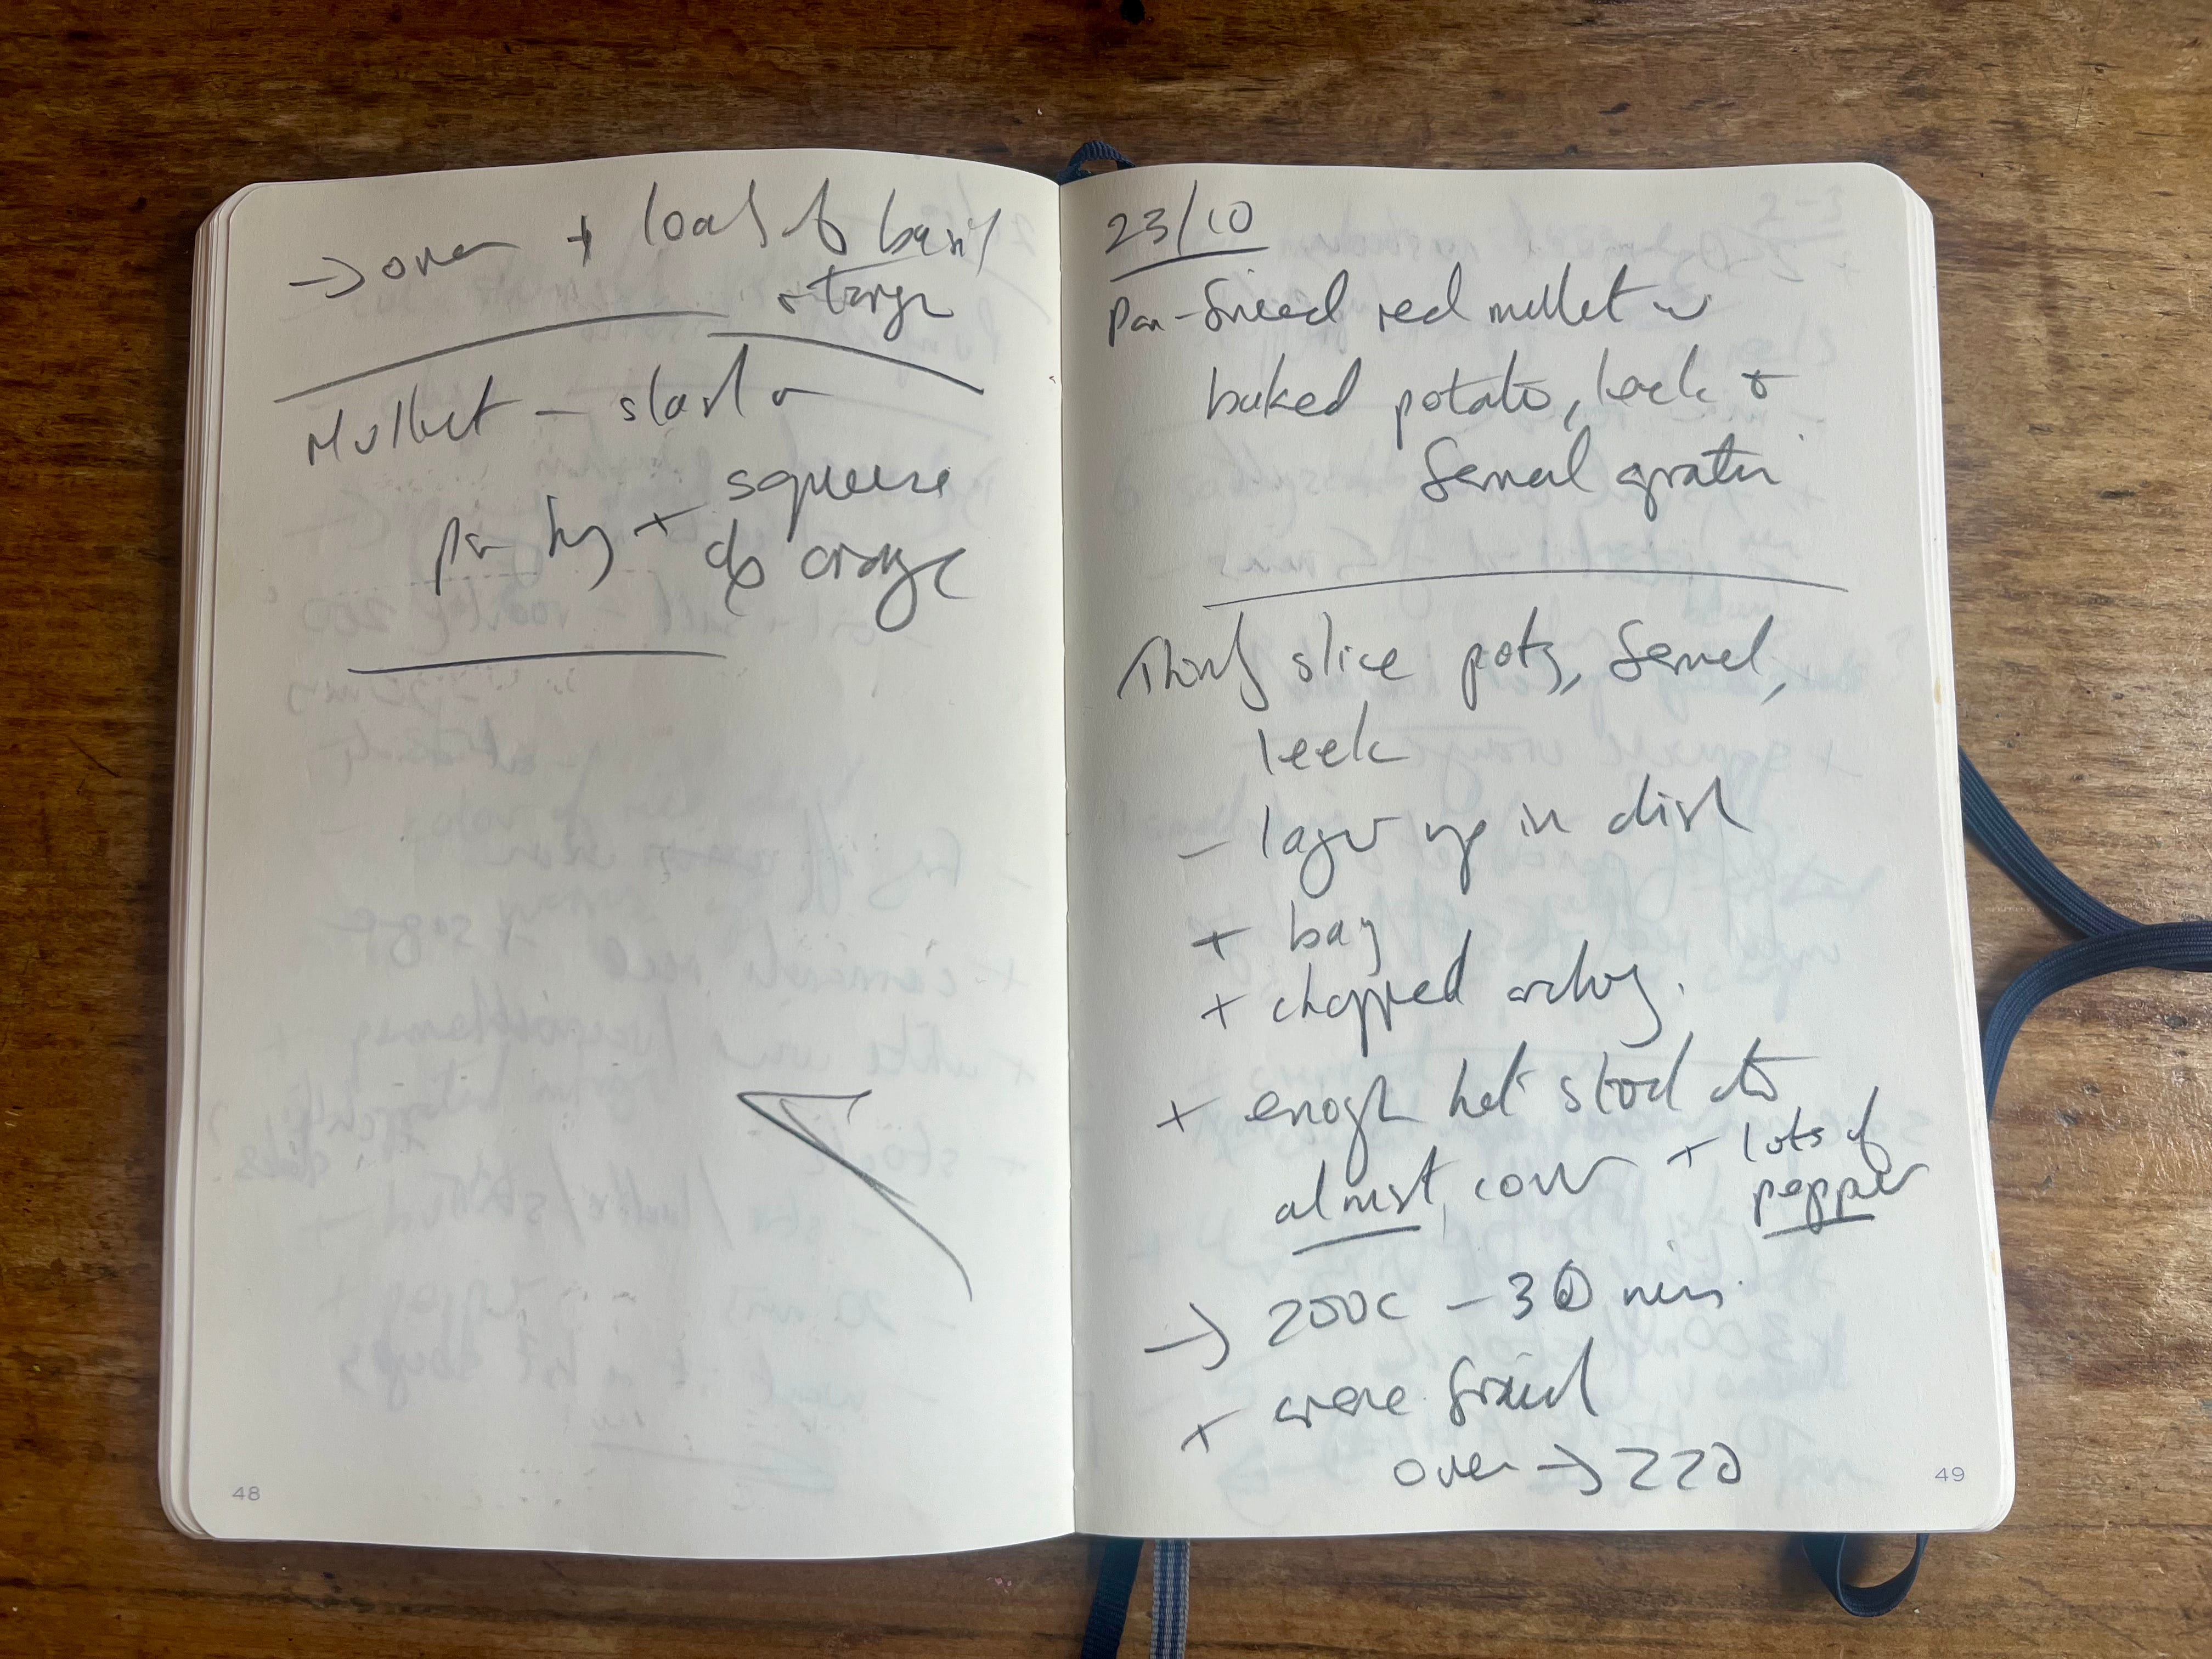 → over + load of basil
+ tarragon
Mullet – slash &
pan fry + squeeze
of orange
48
23/10
Pan-fried red mullet w
baked potato, leek &
fennel gratin
Thinly slice pots, fennel,
leek
– layer up in dish
+ bay
+ chopped anchovy.
+ enough hot stock to
almost cover + lots of
pepper
→ 200c – 30 mins
+ creme fraiche
over → 220
49